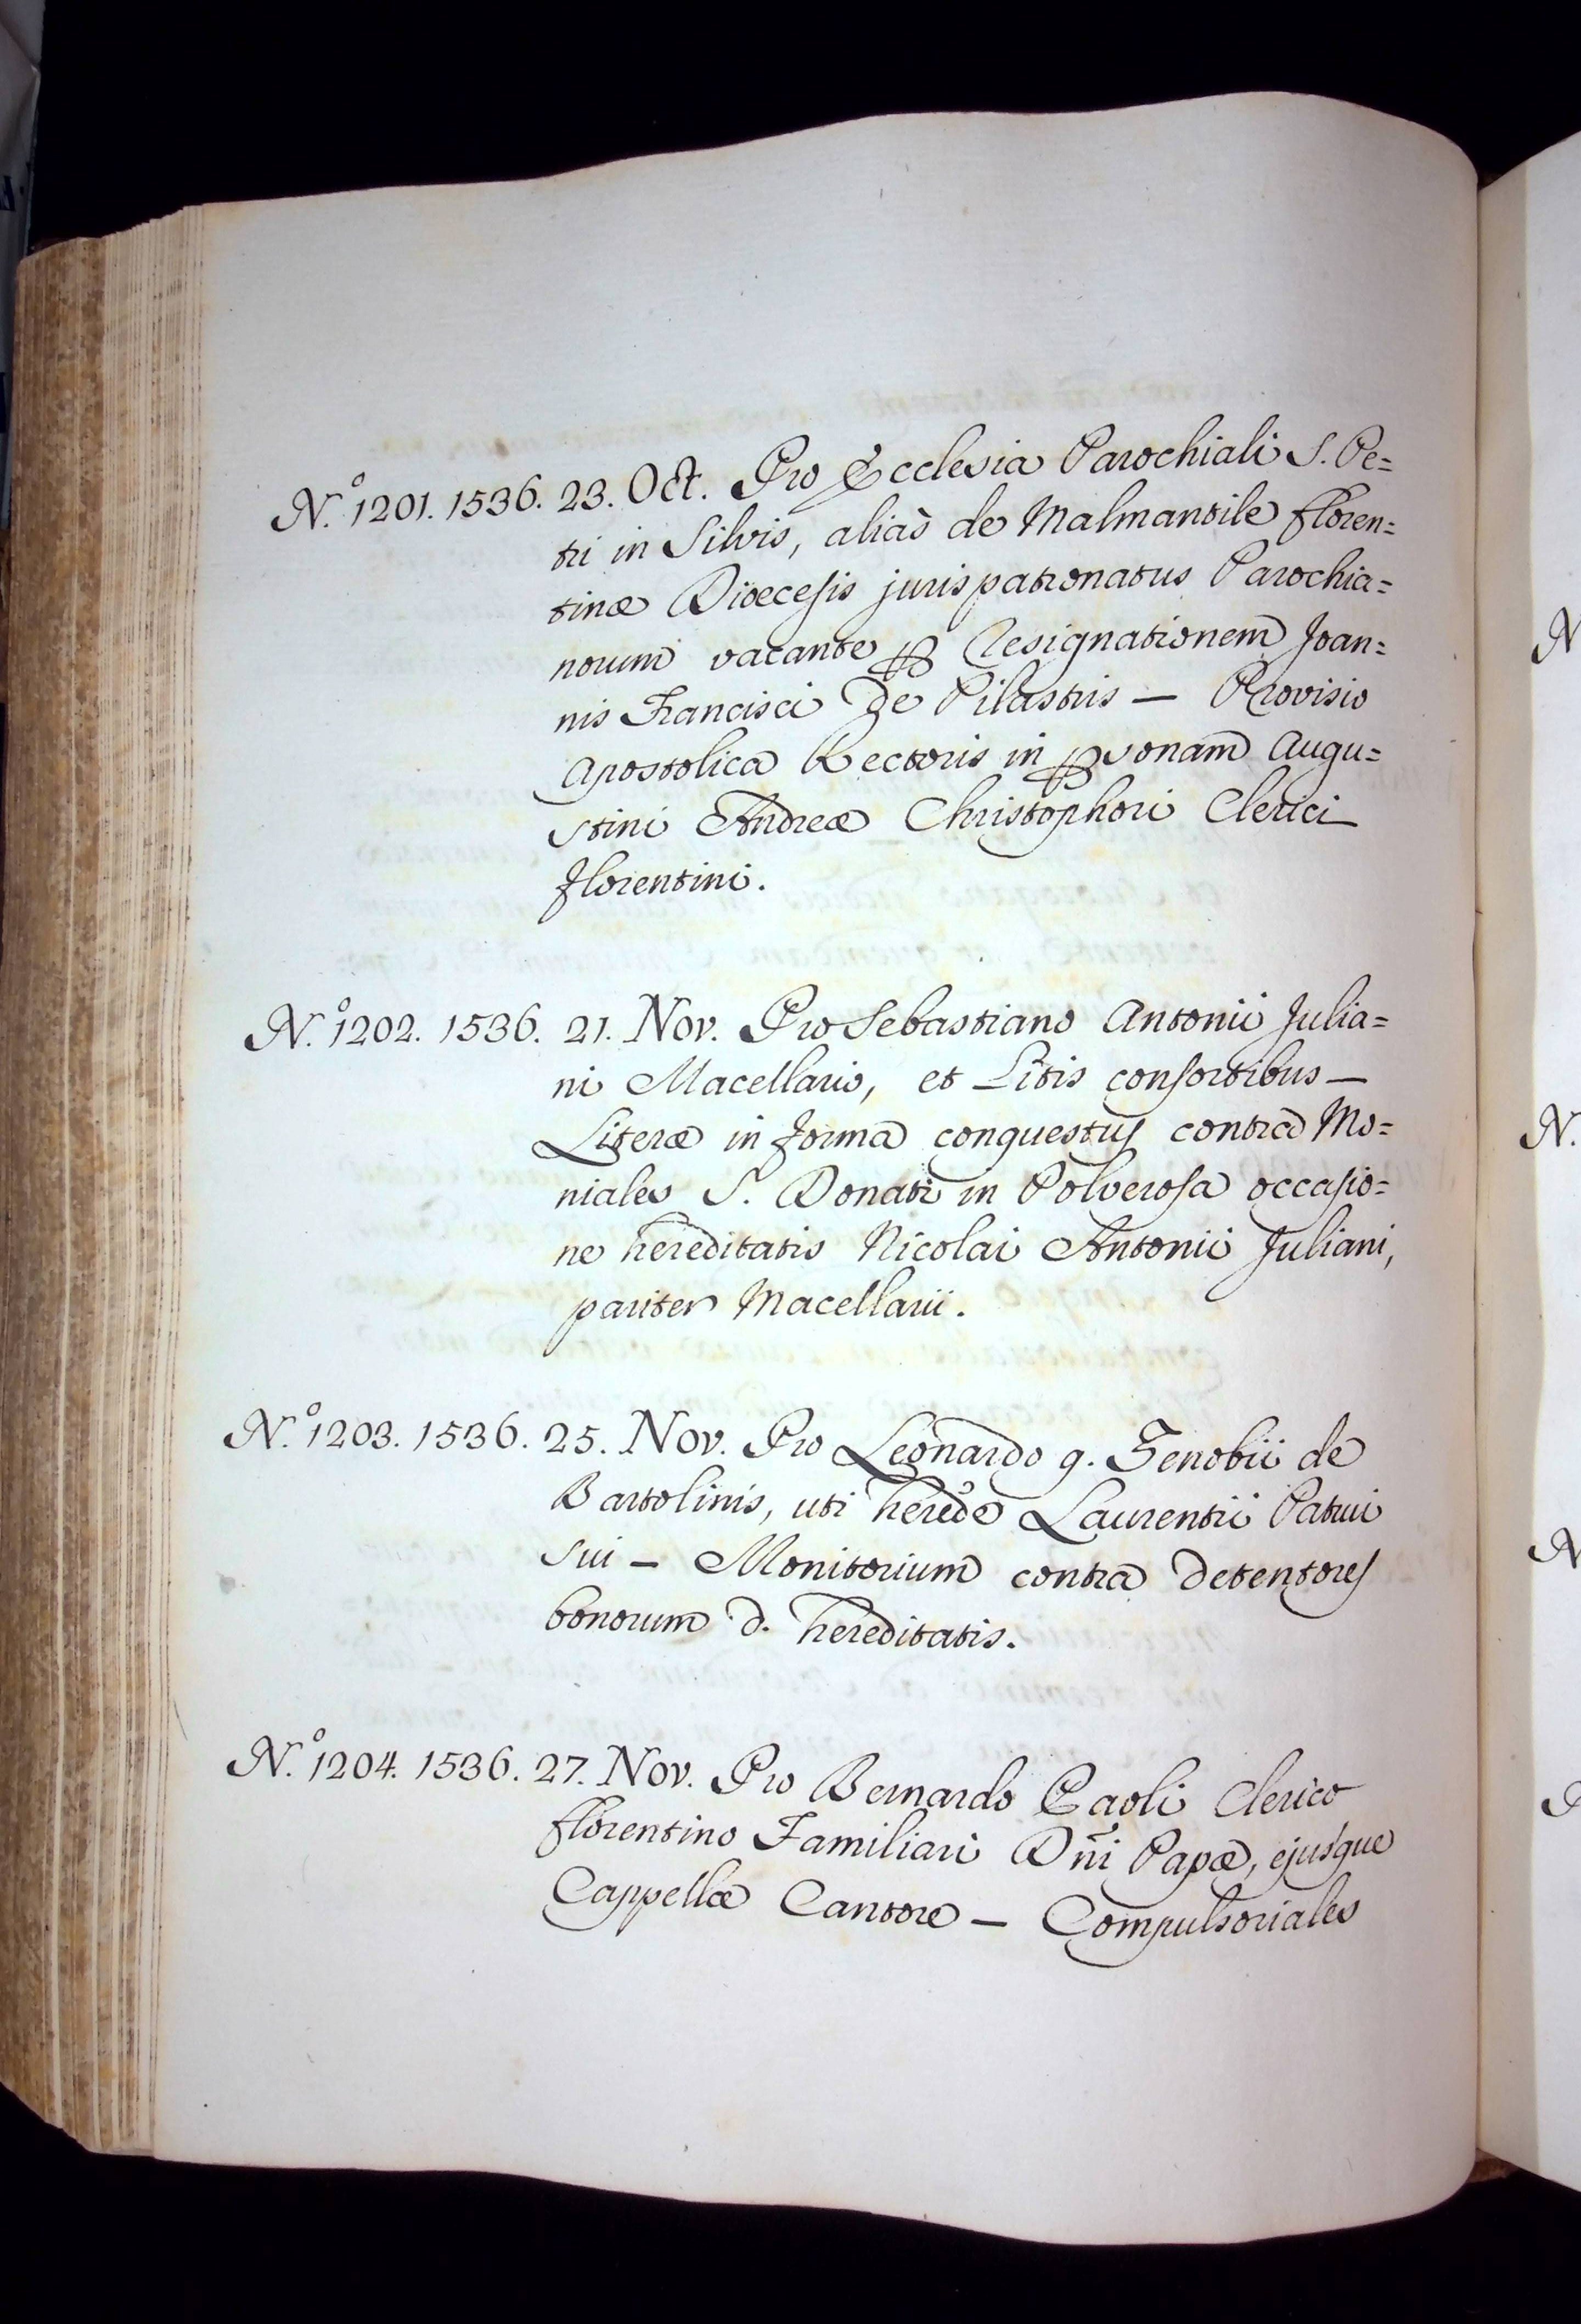 N.º 1201. 1536. 23. Oct. Pro Ecclesia Parochiali S. Pe=
tri in Silvis, aliàs de Malmantile floren=
tinæ Dioecesis jurispatronatus Parochia=
norum vacante ꝑ Resignationem Joan=
nis Francisci De Pilastris — Provisio
Apostolica Rectoris in ꝑsonam Augu=
stini Andreæ Christophori Clerici
florentini.
N.º 1202. 1536. 21. Nov. Pro Sebastiano Antonii Julia=
ni Macellario, et Litis consortibus —
Literæ in forma conquestus contra Mo=
niales S. Donati in Polverosa occasio=
ne hereditatis Nicolai Antonii Juliani,
pariter Macellarii.
N.º 1203. 1536. 25. Nov. Pro Leonardo q. Zenobii de
Bartolinis, uti herede Laurentii Patrui
sui — Monitorium contra detentores
bonorum d. hereditatis.
N.º 1204. 1536. 27. Nov. Pro Bernardo Paoli Clerico
florentino Familiari Dñi Papæ, ejusque
Cappellæ Cantore — Compulsoriales
N
N.
N